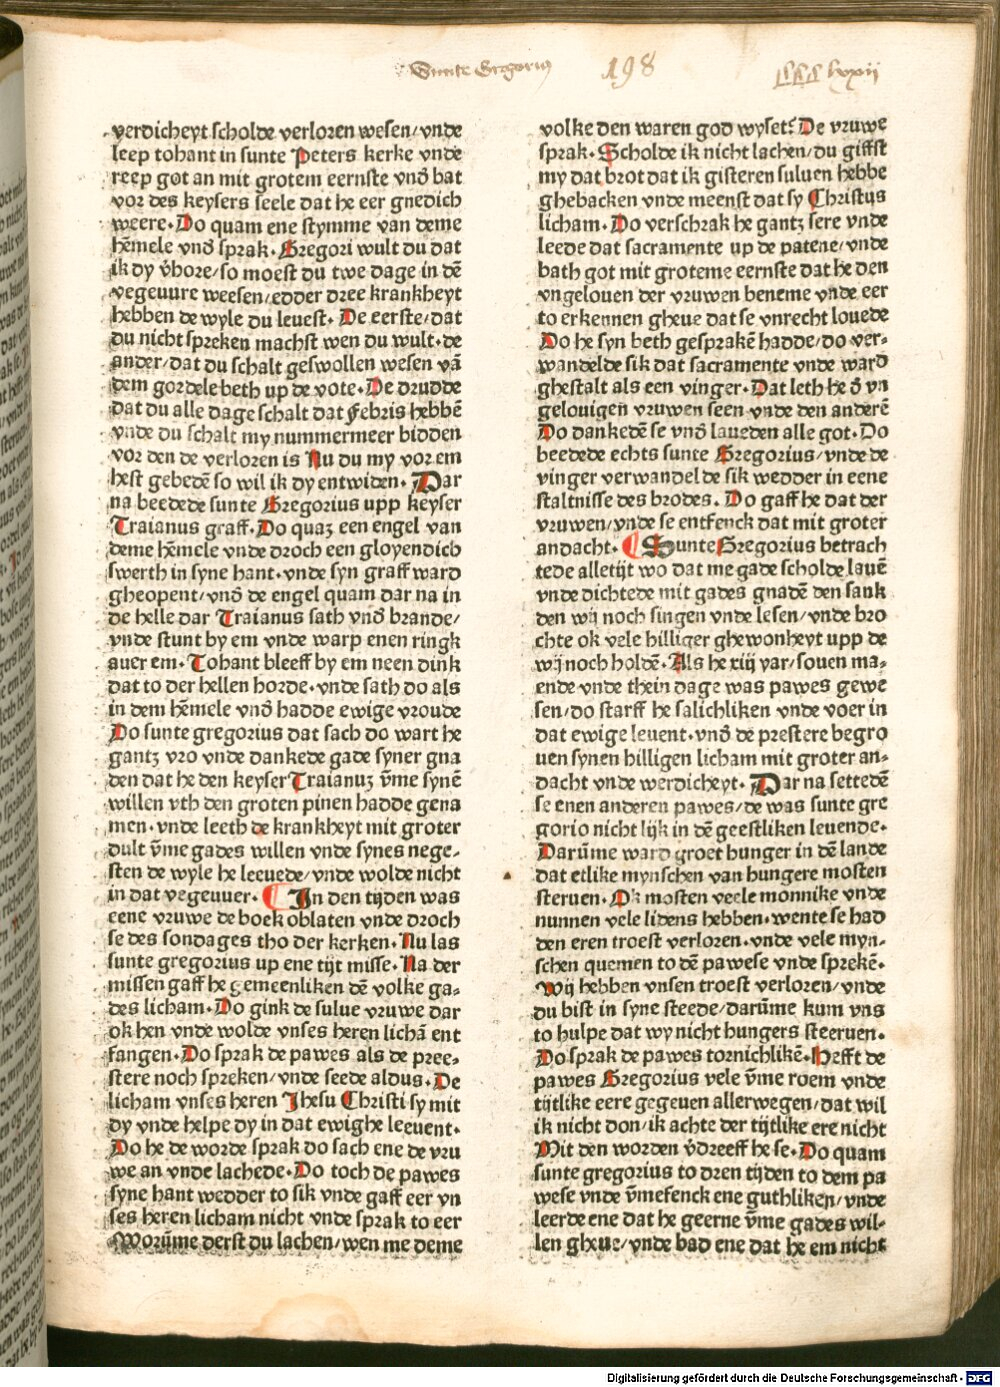 Sunte Gregorius 198 lxxii
verdicheyt scholde verloren wesen/vnde
leep tohant in sunte Peters kerke vnde
reep got an mit grotem eernste vnd̄ bat
vor des keysers seele dat he eer gnedich
weere. Do quam ene stymme van deme
hēmele vnd̄ sprak. Gregori wult du dat
ik dy v̄hore/so moest du twe dage in dē
vegeuure weesen/edder dree krankheyt
hebben de wyle du leuest. De eerste/dat
du nicht spreken machst wen du wult. de
ander/dat du schalt geswollen wesen vā
dem gordele beth up de vote. De drudde
dat du alle dage schalt dat Febris hebbē
vnde du schalt my nummermeer bidden
vor den de verloren is Nu du my vor em
hest gebedē so wil ik dy entwiden. Dar
na beedede sunte Gregorius upp keyser
Traianus graff. Do quaz een engel van
deme hēmele vnde droch een gloyendich
swerth in syne hant. vnde syn graff ward
gheopent/vnd̄ de engel quam dar na in
de helle dar Traianus sath vnd̄ brande/
vnde stunt by em vnde warp enen ringk
auer em. Tohant bleeff by em neen dink
dat to der hellen horde. vnde sath do als
in dem hēmele vnd̄ hadde ewige vroude
Do sunte gregorius dat sach do wart he
gantz vro vnde dankede gade syner gna
den dat he den keyser Traianuz v̄me synē
willen vth den groten pinen hadde gena
men. vnde leeth de krankheyt mit groter
dult v̄me gades willen vnde synes nege-
sten de wyle he leeuede/vnde wolde nicht
in dat vegeuuer. ¶ In den tijden was
eene vruwe de boek oblaten vnde droch
se des sondages tho der kerken. Nu las
sunte gregorius up ene tijt misse. Na der
missen gaff he gemeenliken dē volke ga-
des licham. Do gink de sulue vruwe dar
ok hen vnde wolde vnses heren lichā ent
fangen. Do sprak de pawes als de pree-
stere noch spreken/vnde seede aldus. De
licham vnses heren Jhesu Christi sy mit
dy vnde helpe dy in dat ewighe leeuent.
Do he de worde sprak do sach ene de vru
we an vnde lachede. Do toch de pawes
syne hant wedder to sik vnde gaff eer vn
ses heren licham nicht vnde sprak to eer
Worūme derst du lachen/wen me deme
volke den waren god wyset? De vruwe
sprak. Scholde ik nicht lachen/du giffst
my dat brot dat ik gisteren suluen hebbe
ghebacken vnde meenst dat sy Christus
licham. Do verschrak he gantz sere vnde
leede dat sacramente up de patene/vnde
bath got mit groteme eernste dat he den
vngelouen der vruwen beneme vnde eer
to erkennen gheue dat se vnrecht louede
Do he syn beth gesprakē hadde/do ver-
wandelde sik dat sacramente vnde ward
ghestalt als een vinger. Dat leth he d̄ vn
gelouigen vruwen seen vnde den anderē
Do dankedē se vnd̄ laueden alle got. Do
beedede echts sunte Gregorius/vnde de
vinger verwandelde sik wedder in eene
staltnisse des brodes. Do gaff he dat der
vruwen/vnde se entfenck dat mit groter
andacht. ¶ Sunte Gregorius betrach
tede alletijt wo dat me gade scholde lauē
vnde dichtede mit gades gnadē den sank
den wij noch singen vnde lesen/vnde bro
chte ok vele hilliger ghewonheyt upp de
wij noch holdē. Als he xiij yar/souen ma-
ende vnde thein dage was pawes gewe
sen/do starff he salichliken vnde voer in
dat ewige leuent. vnd̄ de prestere begro
uen synen hilligen licham mit groter an-
dacht vnde werdicheyt. Dar na settedē
se enen anderen pawes/de was sunte gre
gorio nicht lijk in dē geestliken leuende.
Darūme ward groet hunger in dē lande
dat etlike mynschen van hungere mosten
steruen. Ok mosten veele monnike vnde
nunnen vele lidens hebben. wente se had
den eren troest verloren. vnde vele myn-
schen quemen to dē pawese vnde sprekē.
Wij hebben vnsen troest verloren/vnde
du bist in syne steede/darūme kum vns
to hulpe dat wy nicht hungers steeruen.
Do sprak de pawes tornichlikē. Hefft de
pawes Gregorius vele v̄me roem vnde
tijtlike eere gegeuen allerwegen/dat wil
ik nicht don/ik achte der tijtlike ere nicht
Mit den worden v̄dreeff he se. Do quam
sunte gregorius to dren tijden to dem pa
wese vnde v̄mefenck ene guthliken/vnde
leerde ene dat he geerne v̄me gades wil-
len gheue/vnde bad ene dat he em nicht
Digitalisierung gefördert durch die Deutsche Forschungsgemeinschaft - DFG